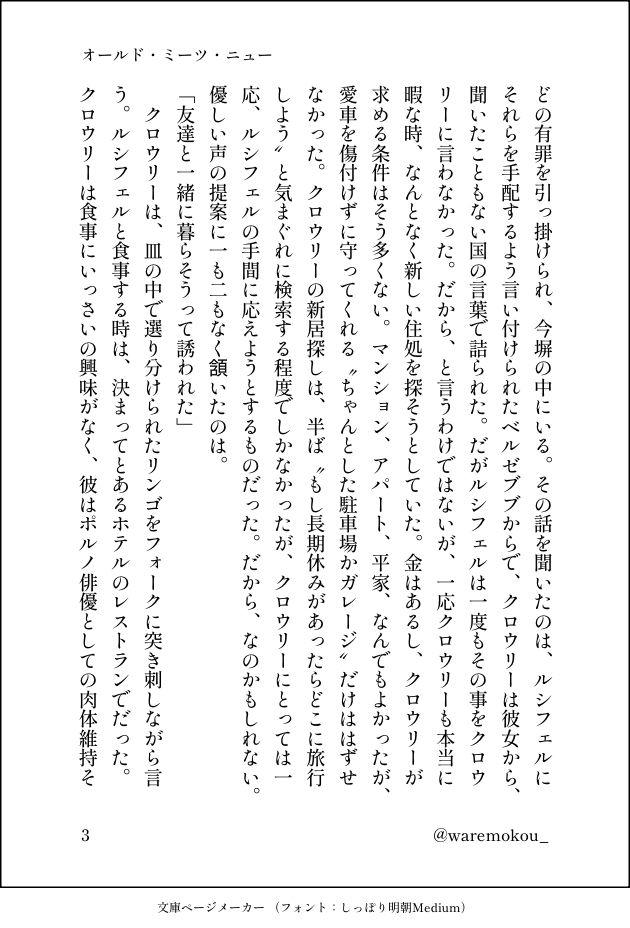 オールド・ミーツ・ニュー
どの有罪を引っ掛けられ、今塀の中にいる。その話を聞いたのは、ルシフェルに
それらを手配するよう言い付けられたベルゼブブからで、クロウリーは彼女から、
聞いたこともない国の言葉で詰られた。だがルシフェルは一度もその事をクロウ
リーに言わなかった。だから、と言うわけではないが、一応クロウリーも本当に
暇な時、なんとなく新しい住処を探そうとしていた。金はあるし、クロウリーが
求める条件はそう多くない。マンション、アパート、平家、なんでもよかったが、
愛車を傷付けずに守ってくれる〝ちゃんとした駐車場かガレージ〟だけははずせ
なかった。クロウリーの新居探しは、半ば〝もし長期休みがあったらどこに旅行
しよう〟と気まぐれに検索する程度でしかなかったが、クロウリーにとっては一
応、ルシフェルの手間に応えようとするものだった。だから、なのかもしれない。
優しい声の提案に一も二もなく頷いたのは。
「友達と一緒に暮らそうって誘われた」
　クロウリーは、皿の中で選り分けられたリンゴをフォークに突き刺しながら言
う。ルシフェルと食事する時は、決まってとあるホテルのレストランでだった。
クロウリーは食事にいっさいの興味がなく、彼はポルノ俳優としての肉体維持そ
3
@waremokou_
文庫ページメーカー（フォント：しっぽり明朝Medium）